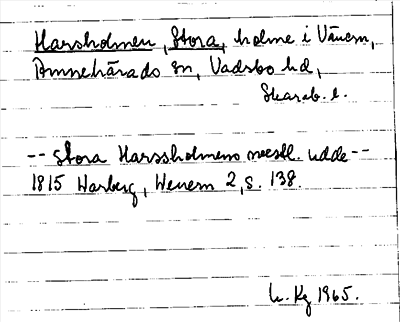 Harsholmen, Stora, holme i Vänern,
Amnehärads sn, Vadsbo hd,
Skarab. l.
-- Stora Harssholmens nordl. udde --
1815 Warberg, Wenern 2, s. 138.
1965.